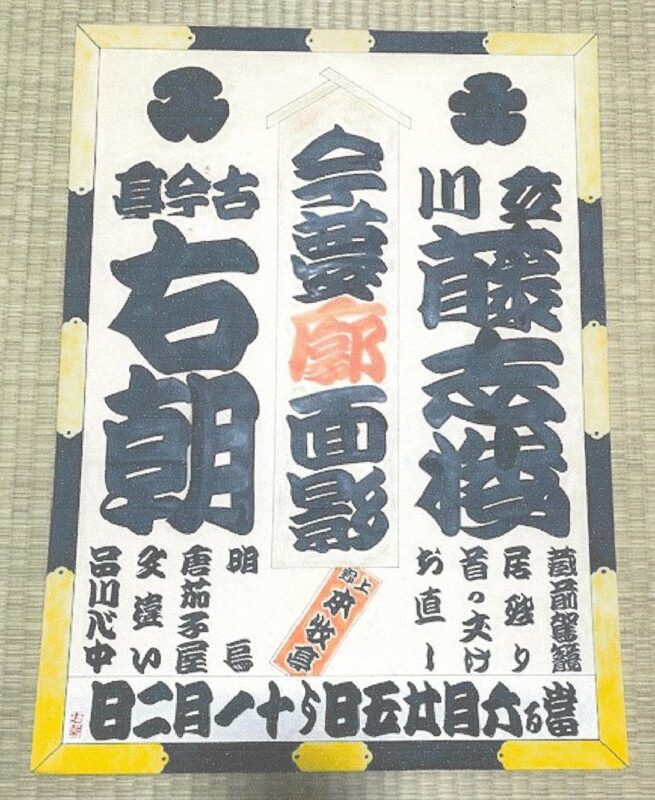 立川
藤志楼
蔵前駕籠
居残り
首ったけ
お直し
今夢廓面影
上野
本牧亭
古今亭
右朝
明烏
唐茄子屋
文違い
品川心中
當る六月廿五日ゟ十一月二日